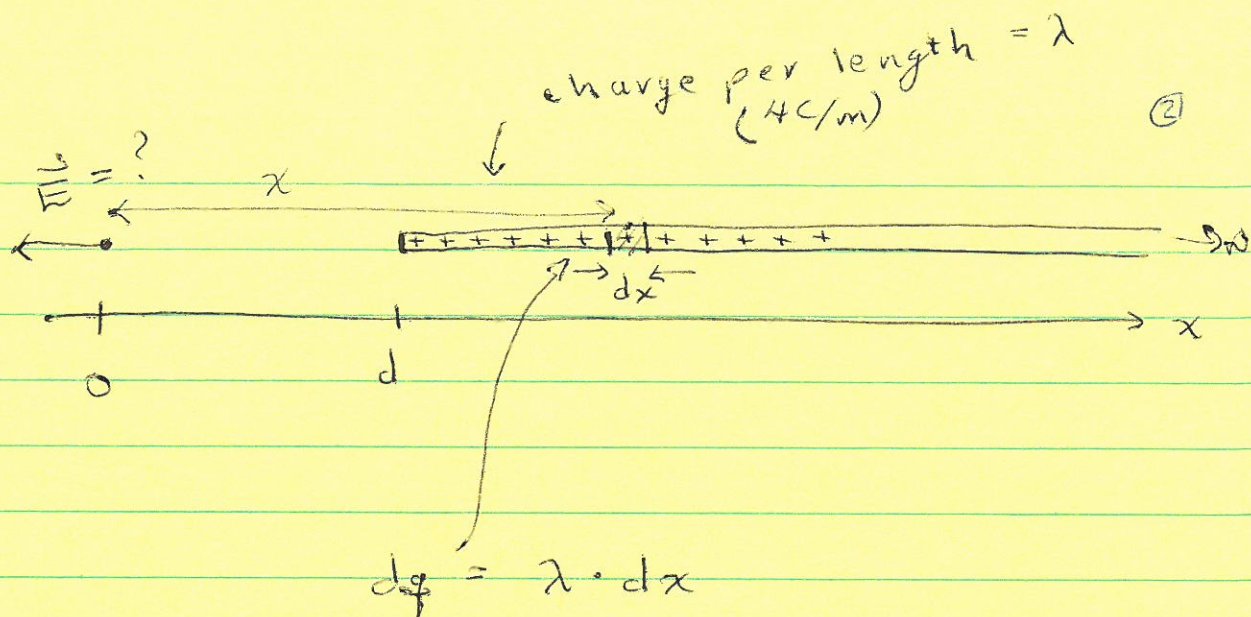 charge per length = λ
(μC/m)
②
E⃗ = ?
x
+ + + + + + + + + + + +
→ ∞
dx
x
0
d
dq = λ · dx